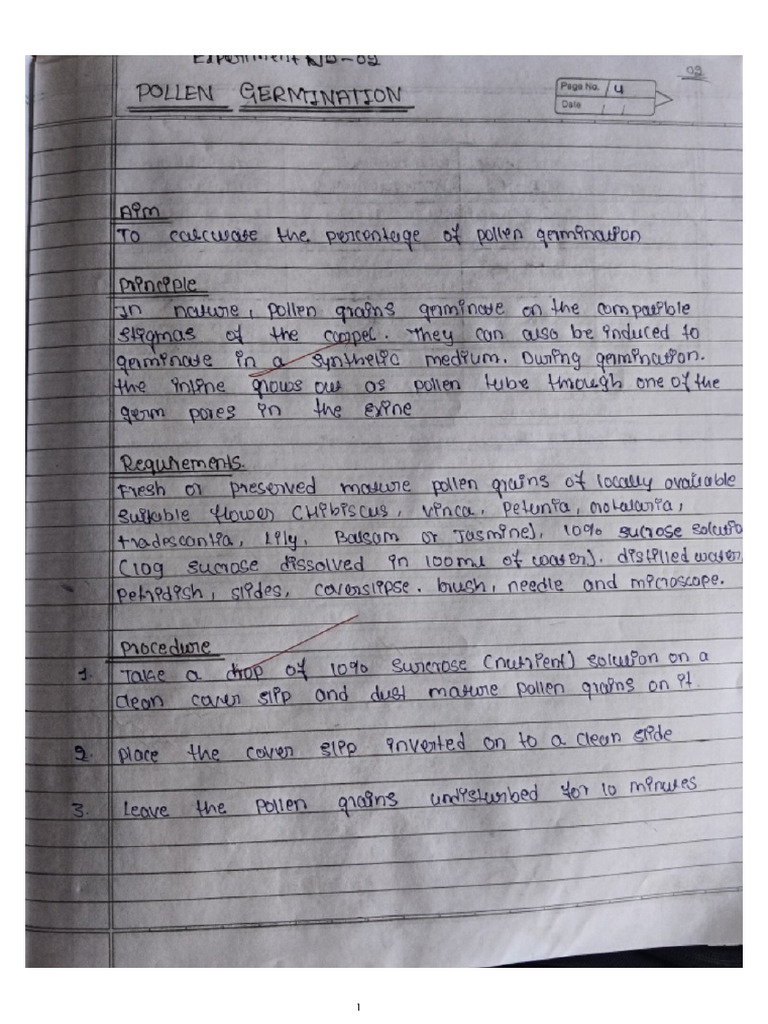 Experiment No-02
02
POLLEN GERMINATION
Page No. 4
Date / /
Aim
To calculate the percentage of pollen germination
Principle
In nature, pollen grains germinate on the compatible
stigmas of the carpel. They can also be induced to
germinate in a synthetic medium. During germination.
the intine grows out as pollen tube through one of the
germ pores in the exine
Requirements.
Fresh or preserved mature pollen grains of locally available
suitable flower (Hibiscus, vinca, petunia, crotalaria,
tradescantia, Lily, Balsam or Jasmine), 10% sucrose solutio
(10g sucrose dissolved in 100ml of water). distilled water,
petridish, slides, coverslipse. brush, needle and microscope.
Procedure
1. Take a drop of 10% surcrose (nutrient) solution on a
clean cover slip and dust mature pollen grains on it.
2. place the cover slip inverted on to a clean slide
3. Leave the pollen grains undisturbed for 10 minutes
1